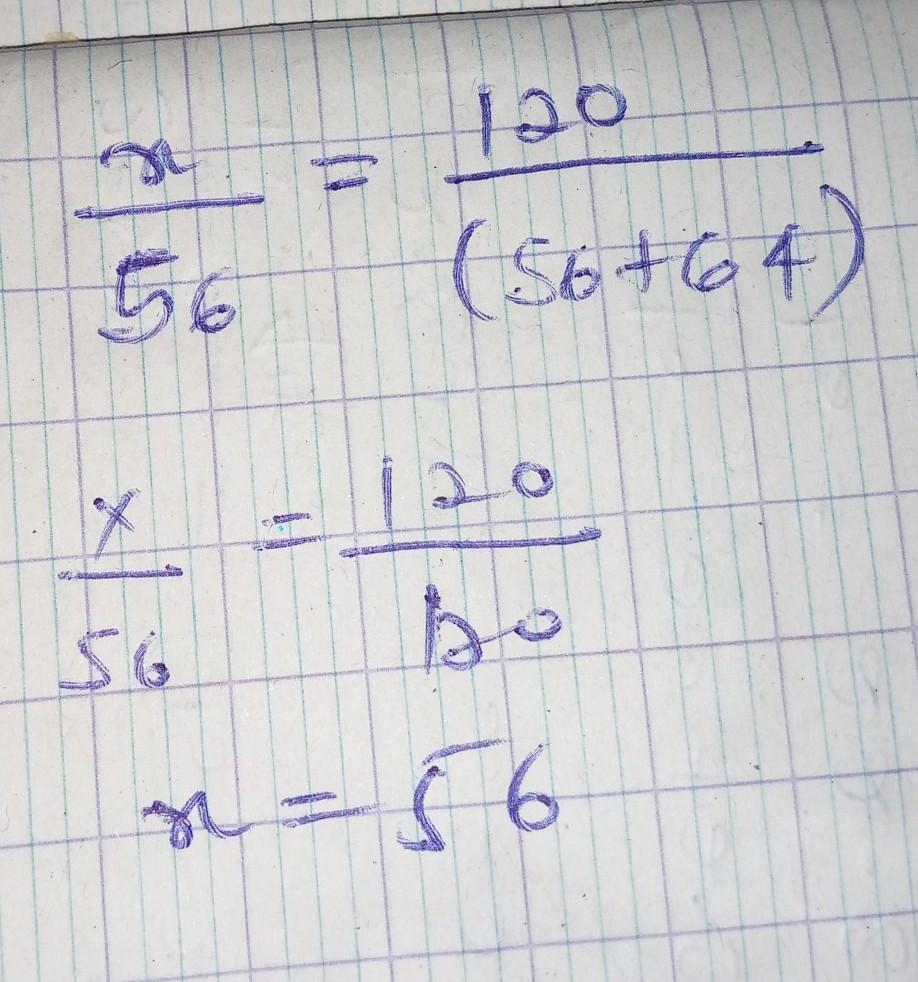 x/56 = 120/(56+64)
x/56 = 120/120
x = 56